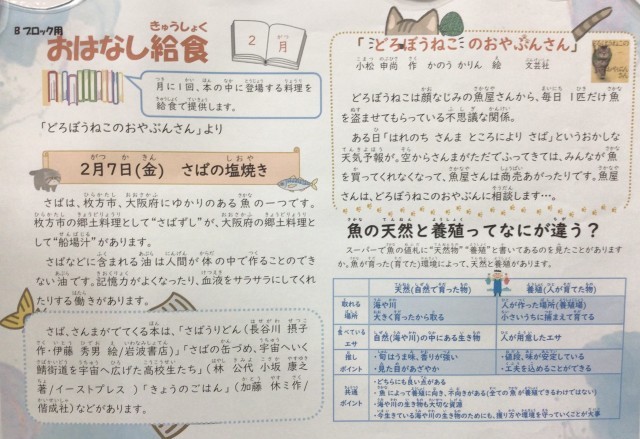 8ブロック用
おはなし給食
きゅうしょく
2月
がつ
月に1回、本の中に登場する料理を
給食で提供します。
「どろぼうねこのおやぶんさん」より
2月7日(金) さばの塩焼き
さばは、枚方市、大阪府にゆかりのある魚の一つです。
枚方市の郷土料理として“さばずし”が、大阪府の郷土料理
として“船場汁”があります。
さばなどに含まれる油は人間が体の中で作ることのでき
ない油です。記憶力がよくなったり、血液をサラサラにしてくれ
たりする働きがあります。
さば、さんまがでてくる本は、「さばうりどん(長谷川 摂子
作・伊藤 秀男 絵/岩波書店)」「さばの缶づめ、宇宙へいく
鯖街道を宇宙へ広げた高校生たち」(林 公代 小坂 康之
著/イーストプレス)「きょうのごはん」(加藤 休ミ作/
偕成社)などがあります。
「どろぼうねこのおやぶんさん」
小松 申尚 作 かのう かりん 絵 文芸社
どろぼうねこは顔なじみの魚屋さんから、毎日 1匹だけ魚
を盗ませてもらっている不思議な関係。
ある日「はれのち さんま ところにより さば」というおかしな
天気予報が。空からさんまがただでふってきては、みんなが魚
を買ってくれなくなって、魚屋さんは商売あがったりです。魚屋
さんは、どろぼうねこのおやぶんに相談します…。
魚の天然と養殖ってなにが違う?
スーパーで魚の値札に“天然物”“養殖”と書いてあるのを見たことがあります
か。魚が育った(育てた)環境によって、天然と養殖があります。
天然(自然で育った物) 養殖(人が育てた物)
取れる場所 海や川 大きく育ったから取る 人が作った場所(養殖場) 小さいうちに捕まえて育てる
食べているエサ 自然(海や川)の中にある生き物 人が用意したエサ
推しポイント ・旬はうま味、香りが強い ・見た目があざやか ・値段、味が安定している ・工夫を込めることができる
共通ポイント ・どちらにも良い点がある
・魚によって養殖に向き、不向きがある(全ての魚が養殖できるわけではない)
・海や川の生き物も大切な資源
・今生きている海や川の生き物のためにも、捕り方や環境を守っていくことが大事